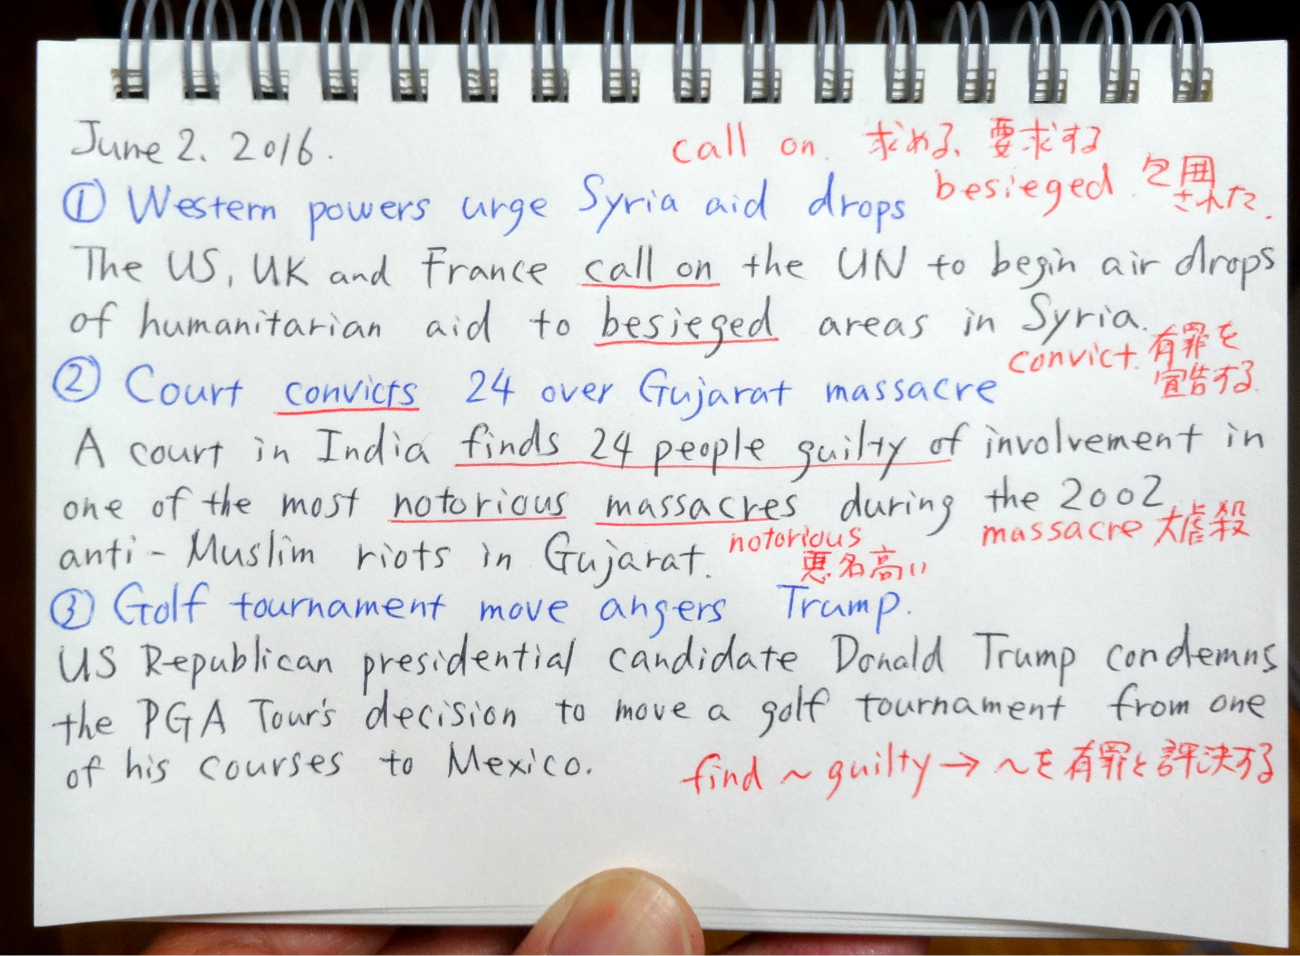 June 2. 2016.
call on. 求める、要求する
① Western powers urge Syria aid drops
besieged. 包囲
された.
The US, UK and France call on the UN to begin air drops
of humanitarian aid to besieged areas in Syria.
convict. 有罪を
宣告する.
② Court convicts 24 over Gujarat massacre
A court in India finds 24 people guilty of involvement in
one of the most notorious massacres during the 2002
massacre 大虐殺
anti-Muslim riots in Gujarat.
notorious
悪名高い
③ Golf tournament move angers Trump.
US Republican presidential candidate Donald Trump condemns
the PGA Tour's decision to move a golf tournament from one
of his courses to Mexico.
find ~ guilty → ~を有罪と評決する